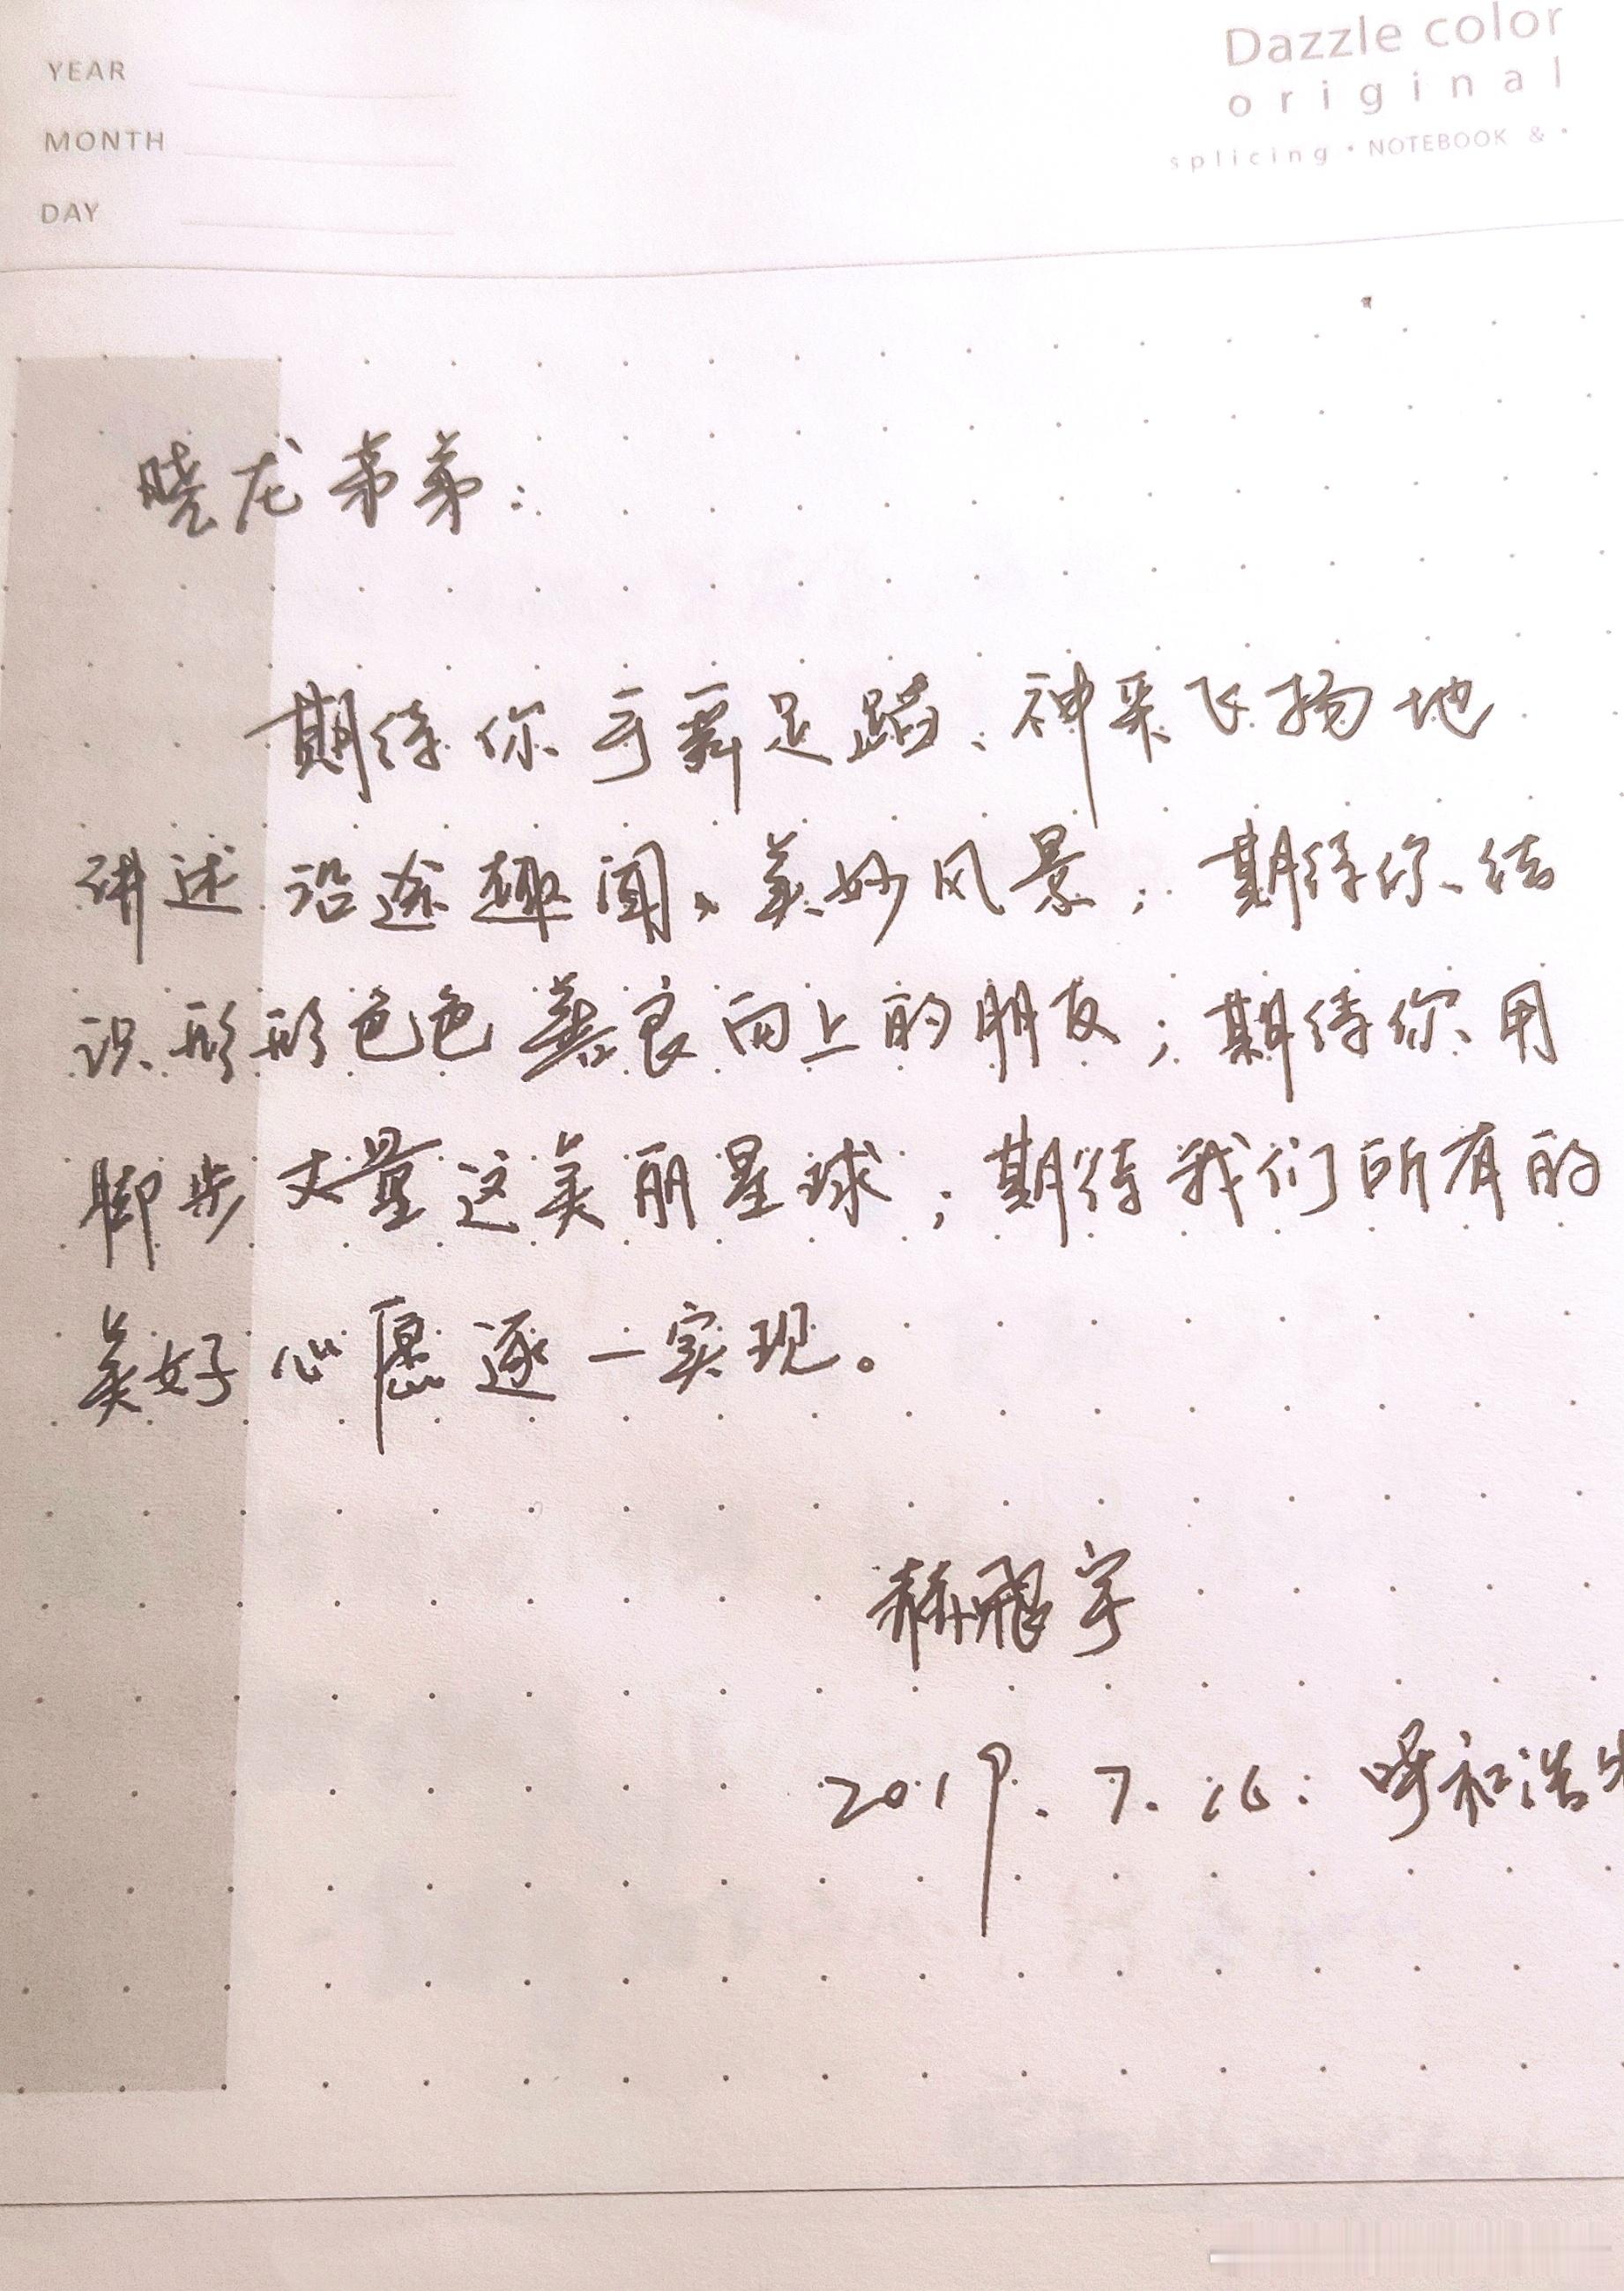 YEAR
MONTH
DAY
Dazzle color
original
splicing • NOTEBOOK & •
晓龙弟弟：
期待你手舞足蹈、神采飞扬地
讲述沿途趣闻、美妙风景；期待你结
识形形色色善良向上的朋友；期待你用
脚步丈量这美丽星球；期待我们所有的
美好心愿逐一实现。
赫飛宇
2019.7.16.呼和浩